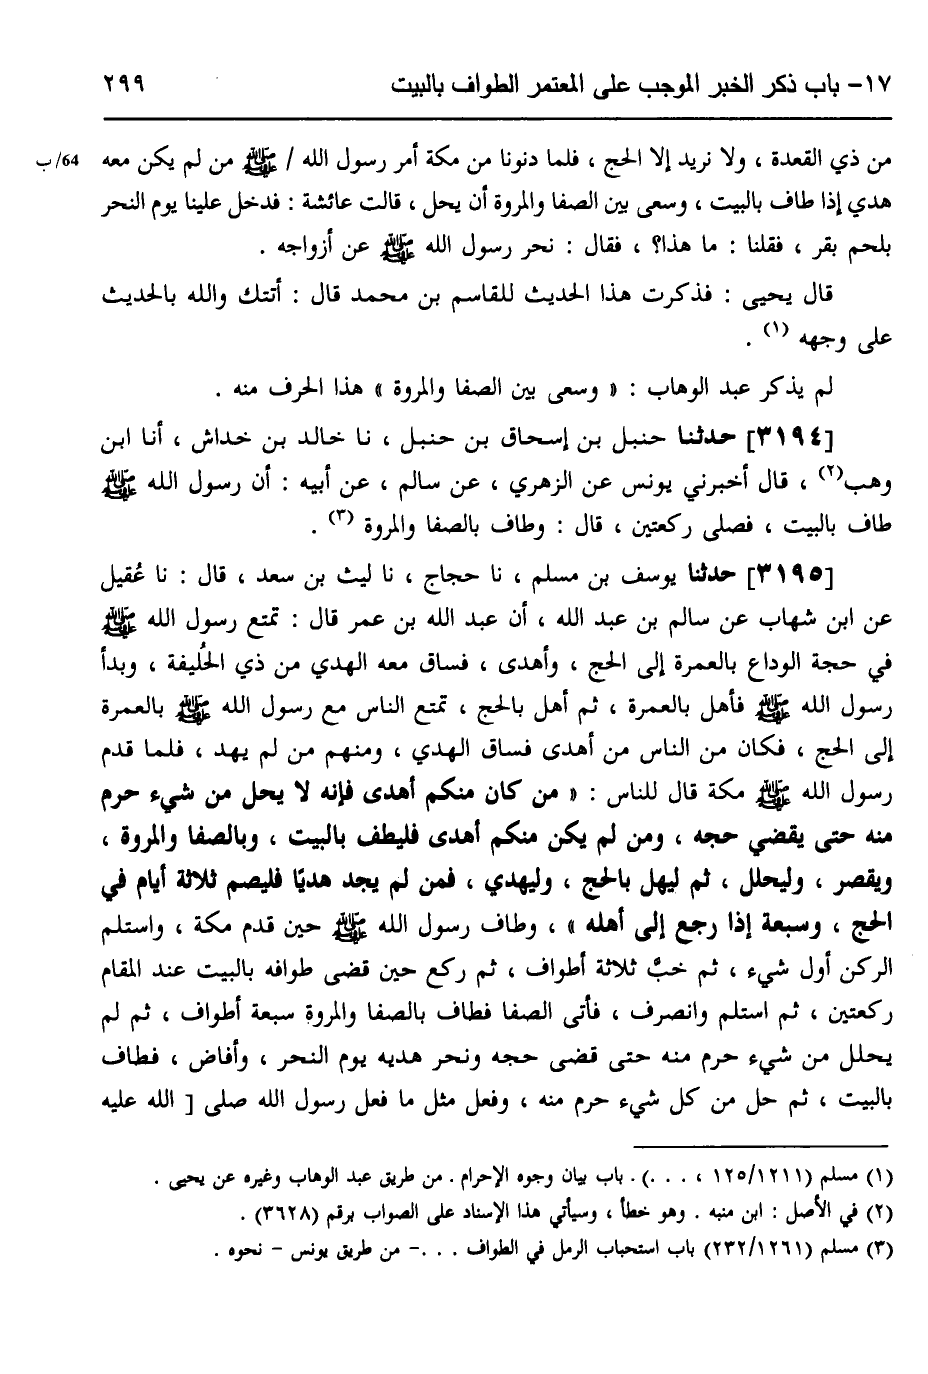 ١٧- باب ذكر الخبر الموجب على المعتمر الطواف بالبيت ٢٩٩
من ذي القعدة ، ولا نريد إلا الحج ، فلما دنونا من مكة أمر رسول الله / ﷺ من لم يكن معه 64/ب
هدي إذا طاف بالبيت ، وسعى بين الصفا والمروة أن يحل ، قالت عائشة : فدخل علينا يوم النحر
بلحم بقر ، فقلنا : ما هذا؟ ، فقال : نحر رسول الله ﷺ عن أزواجه .
قال يحيى : فذكرت هذا الحديث للقاسم بن محمد قال : أتتك والله بالحديث
على وجهه (١) .
لم يذكر عبد الوهاب : « وسعى بين الصفا والمروة » هذا الحرف منه .
[٣١٩٤] حدثنا حنبل بن إسحاق بن حنبل ، نا خالد بن خداش ، أنا ابن
وهب(٢) ، قال أخبرني يونس عن الزهري ، عن سالم ، عن أبيه : أن رسول الله ﷺ
طاف بالبيت ، فصلى ركعتين ، قال : وطاف بالصفا والمروة (٣) .
[٣١٩٥] حدثنا يوسف بن مسلم ، نا حجاج ، نا ليث بن سعد ، قال : نا عُقيل
عن ابن شهاب عن سالم بن عبد الله ، أن عبد الله بن عمر قال : تمتع رسول الله ﷺ
في حجة الوداع بالعمرة إلى الحج ، وأهدى ، فساق معه الهدي من ذي الحُليفة ، وبدأ
رسول الله ﷺ فأهل بالعمرة ، ثم أهل بالحج ، تمتع الناس مع رسول الله ﷺ بالعمرة
إلى الحج ، فكان من الناس من أهدى فساق الهدي ، ومنهم من لم يهد ، فلما قدم
رسول الله ﷺ مكة قال للناس : « من كان منكم أهدى فإنه لا يحل من شيء حرم
منه حتى يقضي حجه ، ومن لم يكن منكم أهدى فليطف بالبيت ، وبالصفا والمروة ،
ويقصر ، وليحلل ، ثم ليهل بالحج ، وليهدي ، فمن لم يجد هديًا فليصم ثلاثة أيام في
الحج ، وسبعة إذا رجع إلى أهله » ، وطاف رسول الله ﷺ حين قدم مكة ، واستلم
الركن أول شيء ، ثم خبَّ ثلاثة أطواف ، ثم ركع حين قضى طوافه بالبيت عند المقام
ركعتين ، ثم استلم وانصرف ، فأتى الصفا فطاف بالصفا والمروة سبعة أطواف ، ثم لم
يحلل من شيء حرم منه حتى قضى حجه ونحر هديه يوم النحر ، وأفاض ، فطاف
بالبيت ، ثم حل من كل شيء حرم منه ، وفعل مثل ما فعل رسول الله صلى [ الله عليه
(١) مسلم (١٢٥/١٢١١ ، . . .) . باب بيان وجوه الإحرام . من طريق عبد الوهاب وغيره عن يحيى .
(٢) في الأصل : ابن منبه . وهو خطأ ، وسيأتي هذا الإسناد على الصواب برقم (٣٦٢٨) .
(٣) مسلم (٢٣٢/١٢٦١) باب استحباب الرمل في الطواف . . .- من طريق يونس - نحوه .